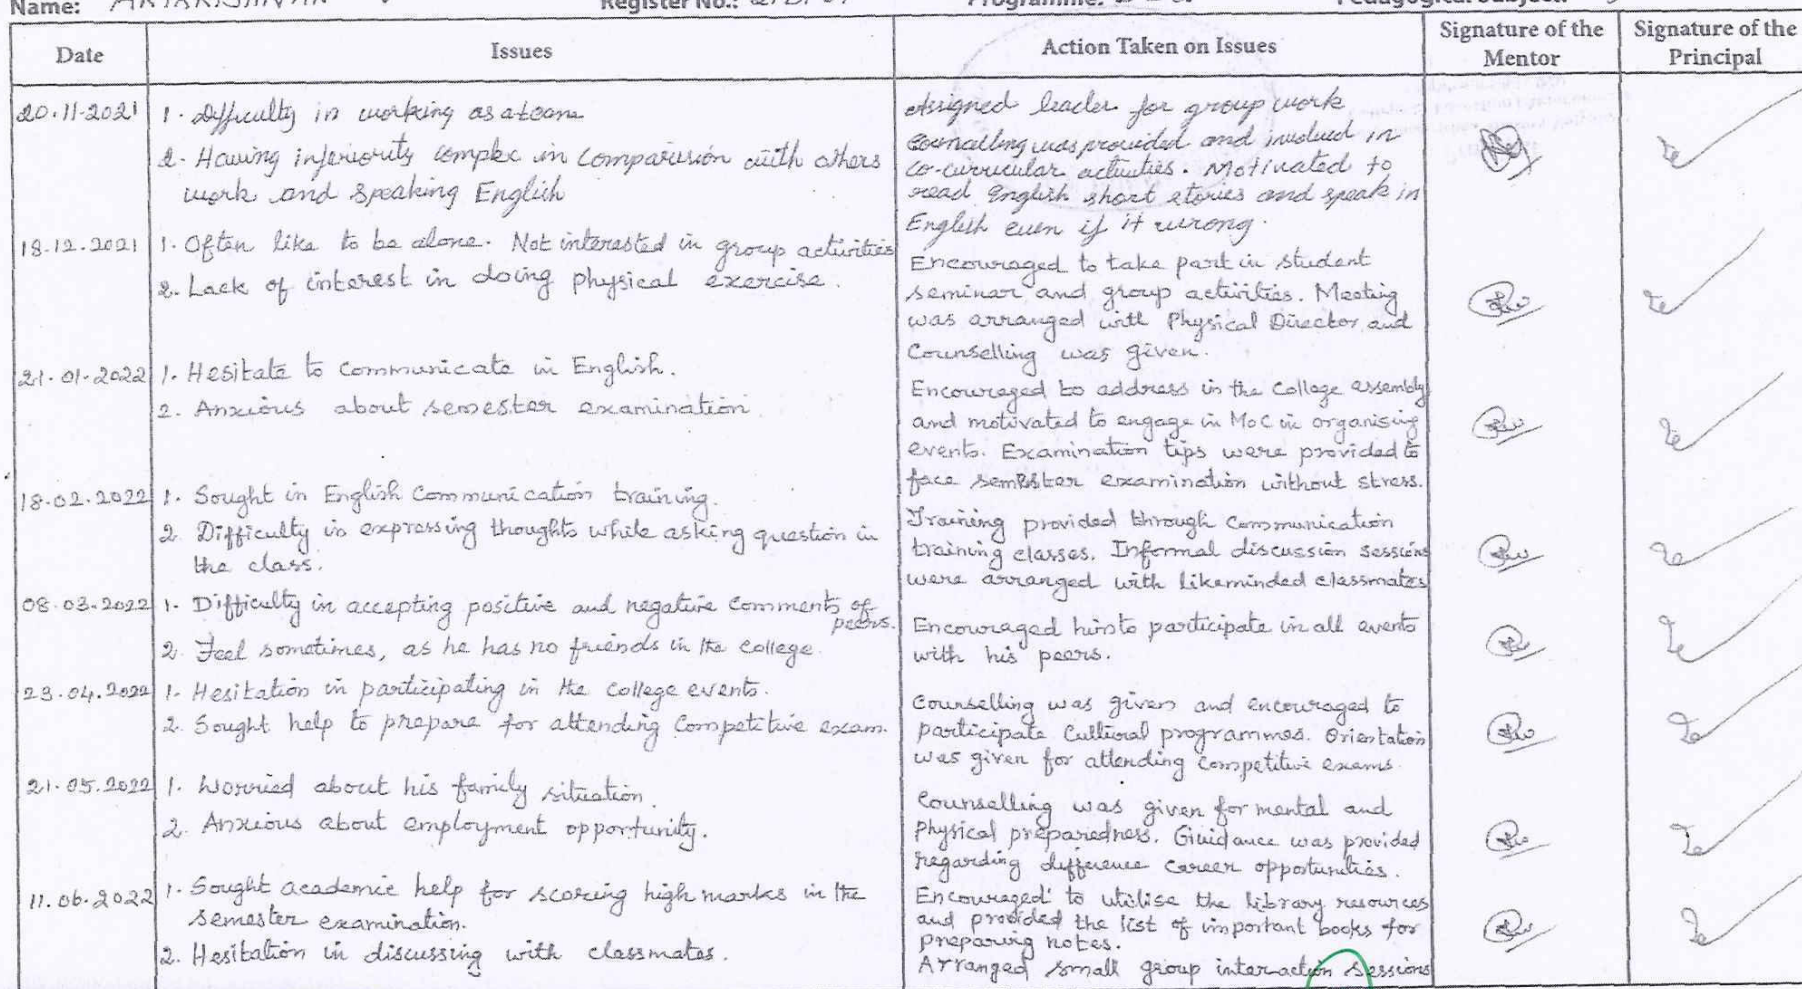 Name:
Register No.:
Programme:
Pedagogical Subject:
Date
Issues
Action Taken on Issues
Signature of the
Mentor
Signature of the
Principal
20.11.2021
1. Difficulty in working as a team
2. Having inferiority complex in comparision with others
work and speaking English
Assigned leader for group work
Counselling was provided and involved in
co-curricular activities. Motivated to
read English short stories and speak in
English even if it wrong.
18.12.2021
1. Often like to be alone. Not interested in group activities
2. Lack of interest in doing physical exercise.
Encouraged to take part in student
seminar and group activities. Meeting
was arranged with Physical Director and
Counselling was given.
21.01.2022
1. Hesitate to communicate in English.
2. Anxious about semester examination
Encouraged to address in the College assembly
and motivated to engage in MoC in organising
events. Examination tips were provided to
face semester examination without stress.
18.02.2022
1. Sought in English Communication training.
2. Difficulty in expressing thoughts while asking question in
the class.
Training provided through Communication
training classes. Informal discussion sessions
were arranged with likeminded classmates
08.03.2022
1. Difficulty in accepting positive and negative comments of
peers.
2. Feel sometimes, as he has no friends in the College.
Encouraged him to participate in all events
with his peers.
23.04.2022
1. Hesitation in participating in the college events.
2. Sought help to prepare for attending Competitive exam.
Counselling was given and encouraged to
participate Cultural programmes. Orientation
was given for attending Competitive exams.
21.05.2022
1. Worried about his family situation.
2. Anxious about employment opportunity.
Counselling was given for mental and
Physical preparedness. Guidance was provided
regarding difference career opportunities.
11.06.2022
1. Sought academic help for scoring high marks in the
semester examination.
2. Hesitation in discussing with classmates.
Encouraged to utilise the library resources
and provided the list of important books for
preparing notes.
Arranged small group interaction sessions